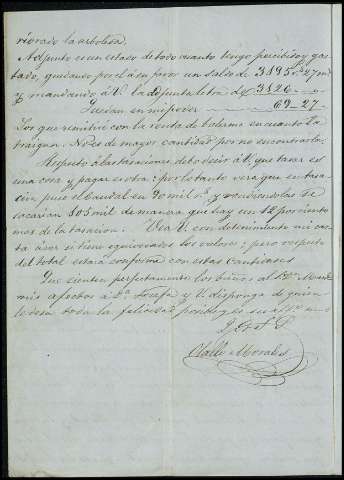 riorado la arboleda.
Adjunto es un estado de todo cuanto tengo percibido y gas-
tado, quedando por él á su favor un saldo de 3195 rs 27 ms
y mandando á V. la adjunta letra de 3126 -
Quedan en mi poder 69 - 27 -
Los que remitiré con la renta de Palermo en cuanto la
traigan. No es de mayor cantidad por no encontrarla.
Respecto á las tasaciones debo decir á V. que tasar es
una cosa y pagar es otra: por lo tanto vera que en tasa-
cion puse el caudal en 90 mil rs y vendiendolas se
sacarian 805 mil de manera que hay un 12 por ciento
mas de la tasacion. Vea V. con detenimiento mi car-
ta á ver si tiene equivocados los valores; pero respecto
del total estará conforme con estas cantidades
Que sienten perfectamente los baños al
mis afectos á Da Josefa y V. disponga de quien
le desea toda la felicidad posible y es su
Q. B. S. M.
Morales